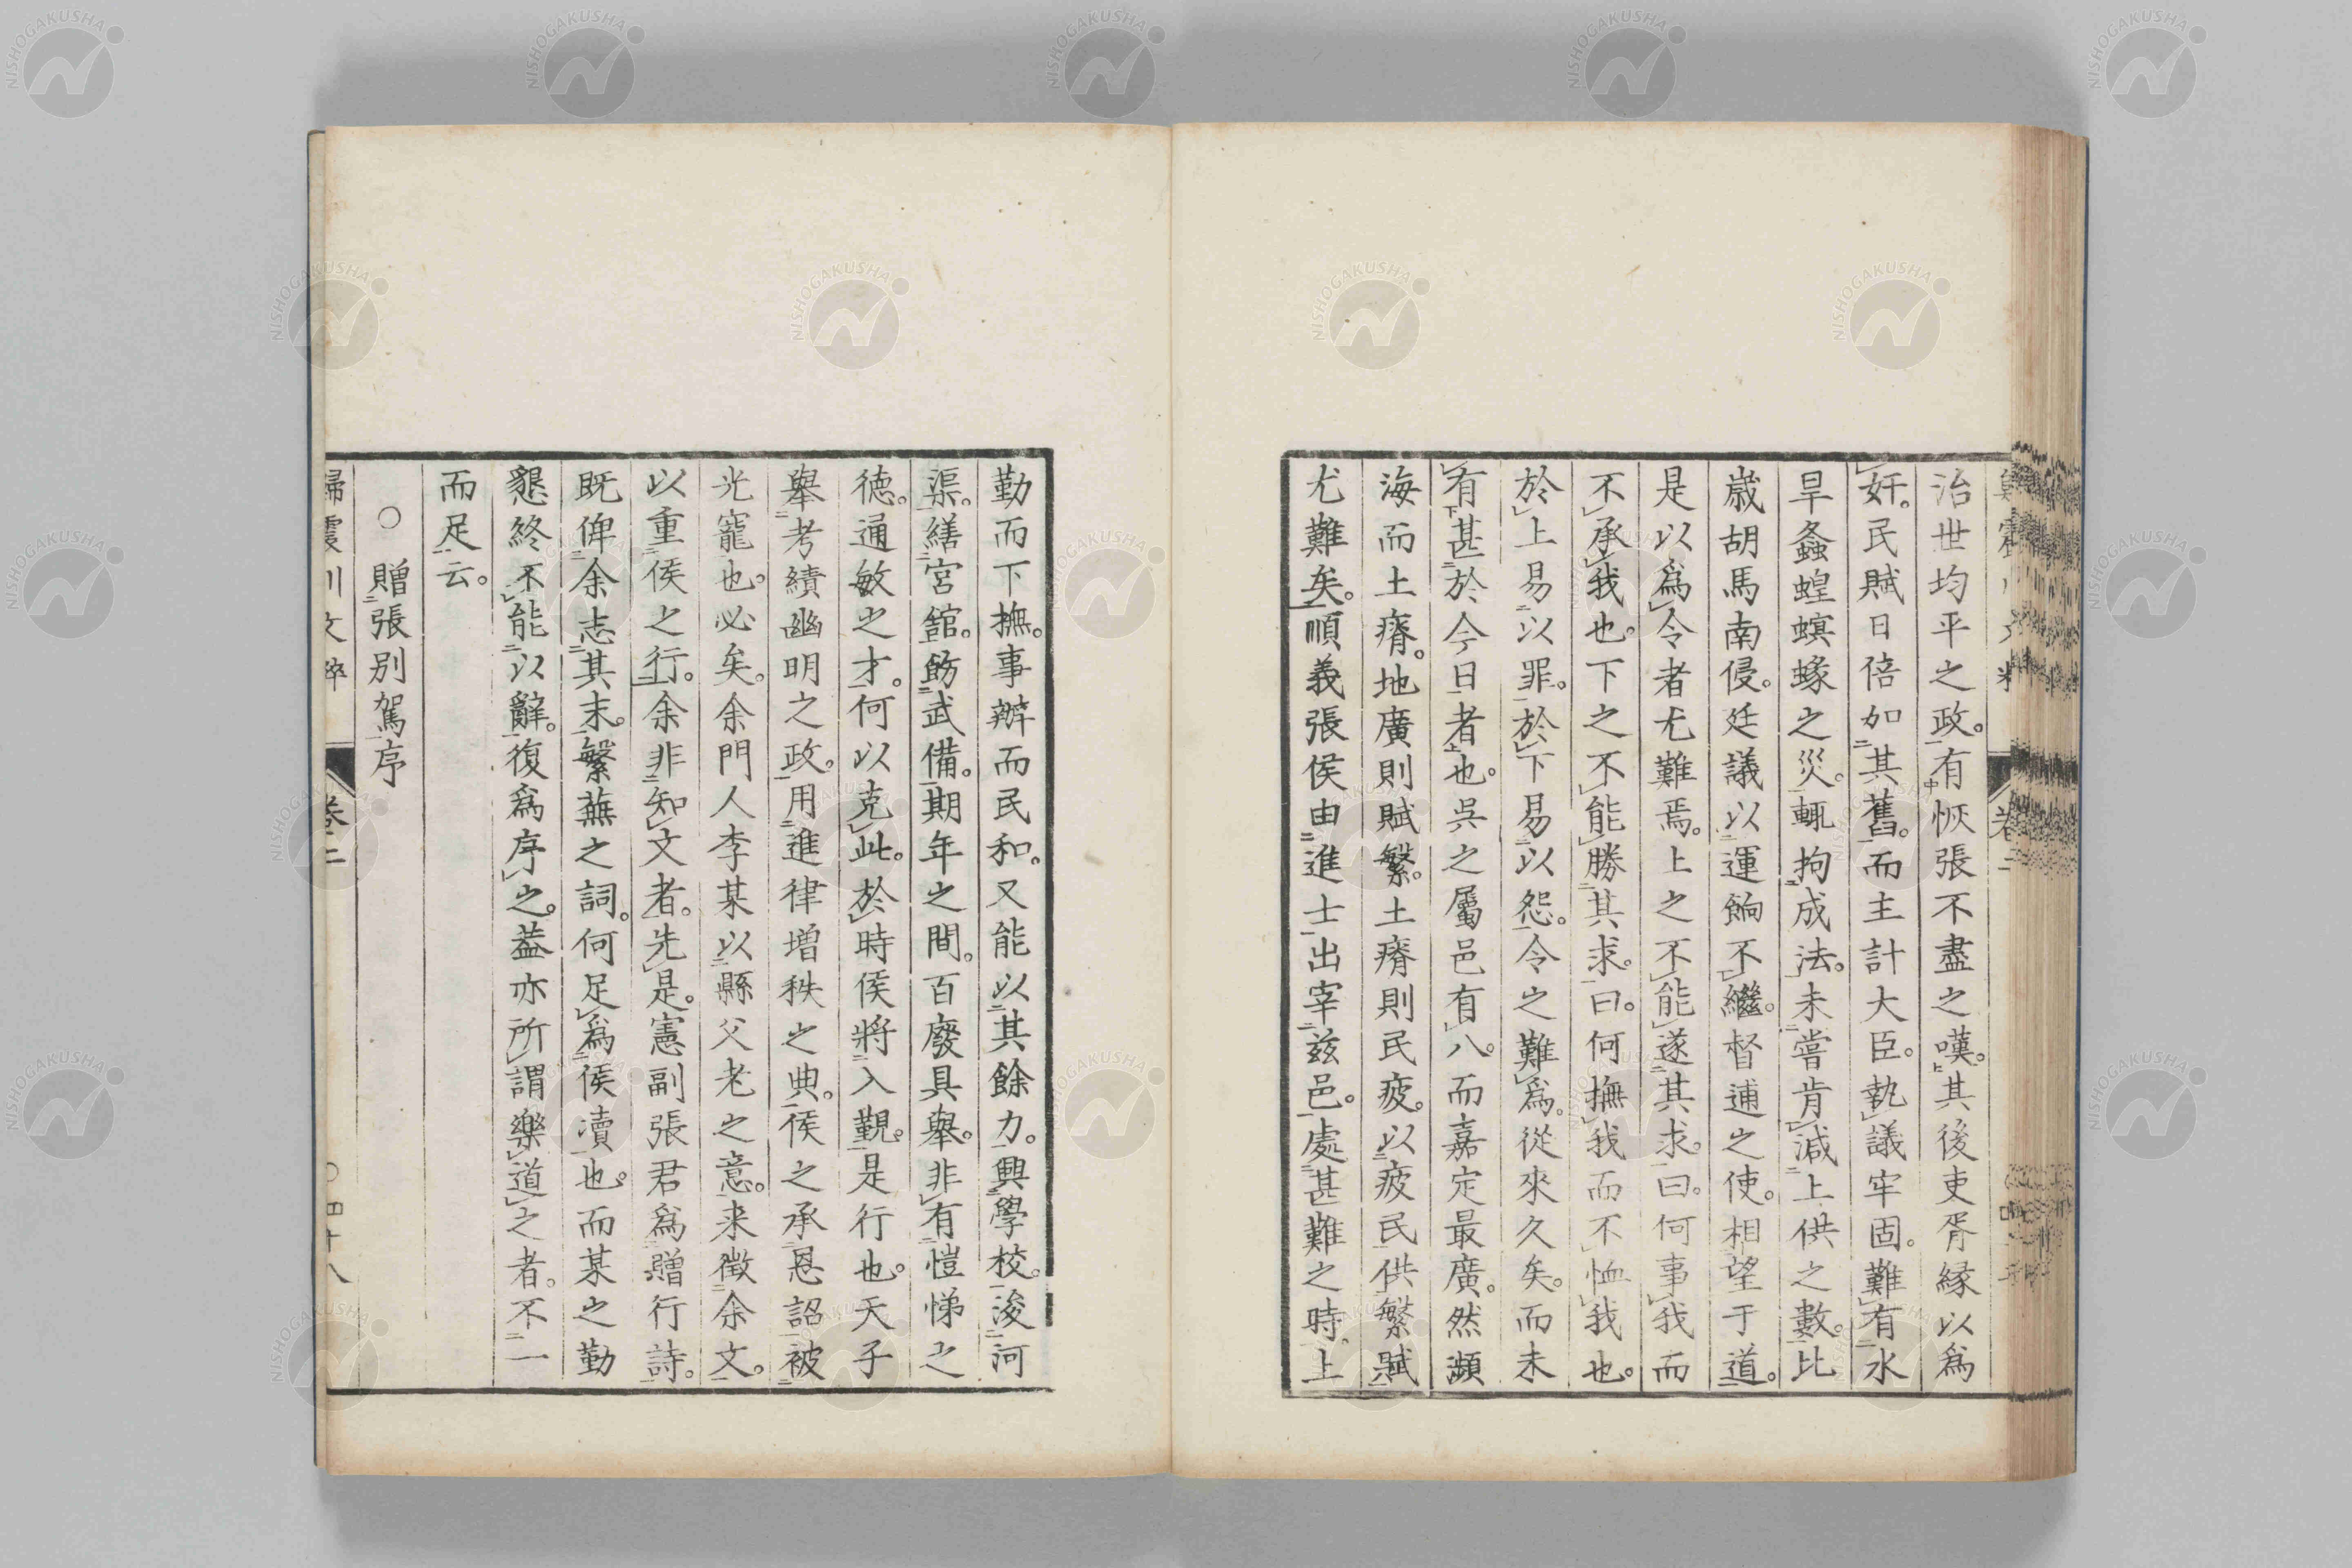 治世均平之政。有恢張不盡之嘆。其後吏胥縁以爲
奸。民賦日倍加其舊。而主計大臣。執議牢固。難有水
旱螽蝗螟蝝之災。輒拘成法。未嘗肯減上供之數。比
歳胡馬南侵。廷議以運餉不繼。督逋之使。相望于道。
是以爲令者尤難焉。上之不能遂其求。曰。何事我而
不承我也。下之不能勝其求。曰。何撫我而不恤我也。
於上易以罪。於下易以怨。令之難爲。從來久矣。而未
有甚於今日者也。吳之屬邑有八。而嘉定最廣。然瀕
海而土瘠。地廣則賦繁。土瘠則民疲。以疲民供繁賦
尤難矣。順義張侯由進士出宰茲邑。處甚難之時。上
勤而下撫。事辦而民和。又能以其餘力。興學校。浚河
渠。繕宮舘。飭武備。期年之間。百廢具擧。非有愷悌之
德。通敏之才。何以克此。於時侯將入覲。是行也。天子
擧考績幽明之政。用進律増秩之典。侯之承恩詔被
光寵也必矣。余門人李某以縣父老之意。来徴余文。
以重侯之行。余非知文者。先是。憲副張君爲贈行詩。
既俾余志其末。繁蕪之詞。何足爲侯瀆也。而某之勤
懇終不能以辭。復爲序之。葢亦所謂樂道之者。不一
而足云。
○贈張別駕序
歸震川文粹 卷二 ○四十八